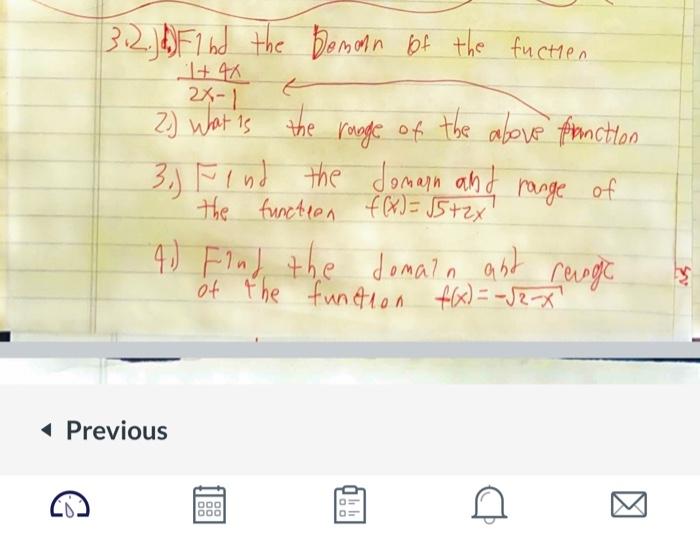 3.2.) 1) F1nd the Domain of the fuction
1 + 4x
2x-1
2.) wat is the range of the above function
3.) Find the domain and range of
the function f(x) = √5+2x
4.) Find the domain and range
of the function f(x) = -√2-x
Previous